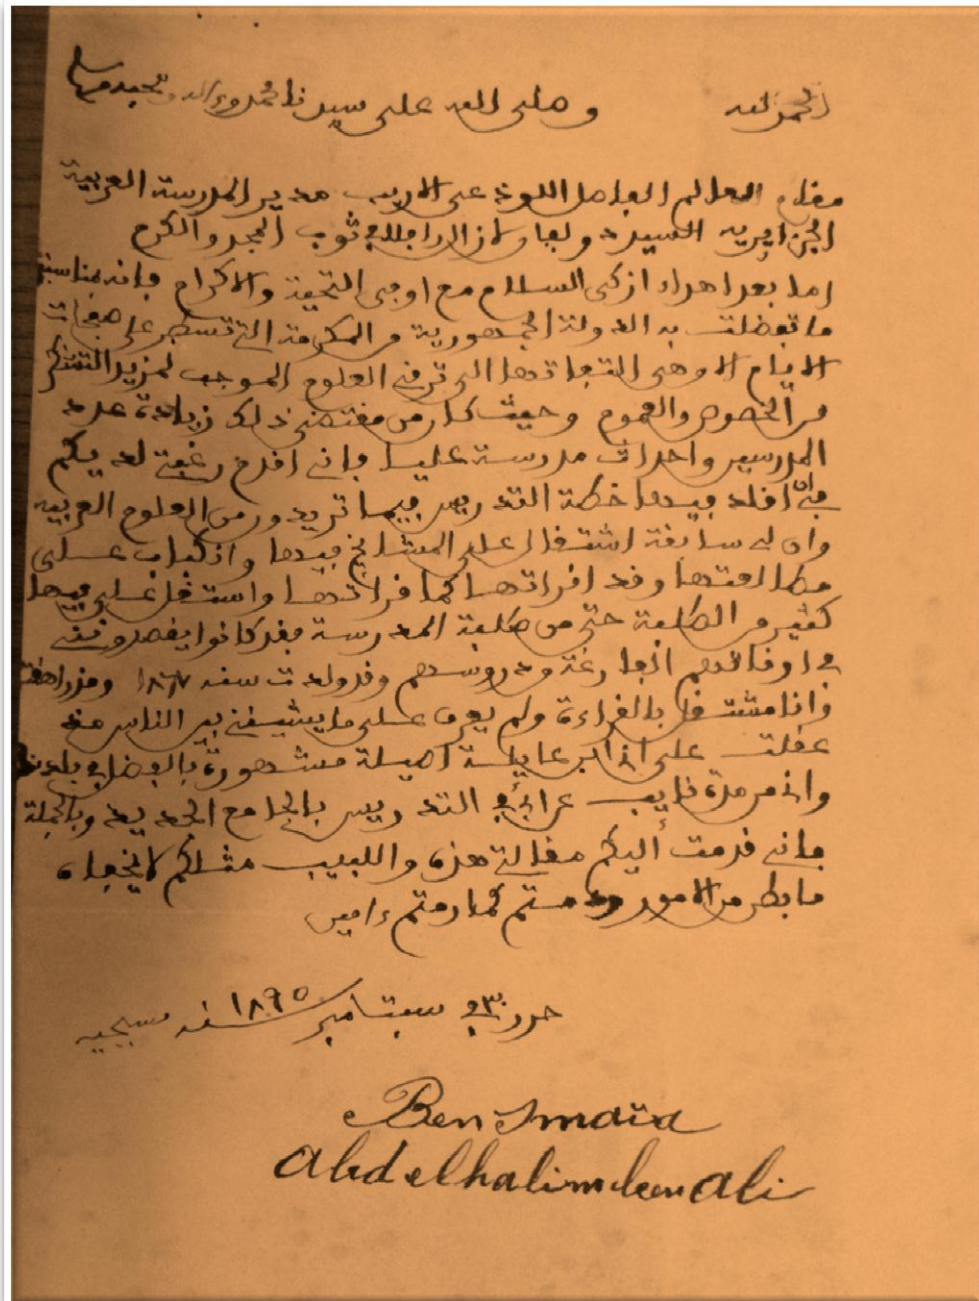 الحمد لله وصلى الله على سيدنا محمد وءاله وصحبه وسلم
مقام العالم الفاضل اللوذعي الاريب مدير المدرسة العربية
الجزايرية السيد دولفان لازال رافلا في ثوب المجد والكرم
اما بعد اهداء ازكى السلام مع اوفى التحية والاكرام فانه بمناسبة
ما تفضلت به الدولة الجمهورية من المكرمة التي تسطر على صفحات
الايام الا وهي التفاتها الى ترقي العلوم الموجب لمزيد التشكر
من الخصوص والعموم وحيث كان من مقتضى ذلك زيادة عدد
المدرسين واحداث مدرسة عليا فاني اقدم رغبتي لديكم
في ان اقلد فيها خطة التدريس فيما تريدون من العلوم العربية
وان لي سابقة اشتغال على المشايخ فيها وانكباب على
مطالعتها وقد اقرأتها كما قرأتها واستغل علي فيها
كثير من الطلبة حتى من طلبة المدرسة فقد كانوا يقصدونني
في اوقاتهم الفارغة من دروسهم وقد ولدت سنه ١٨٦٧
وانا مشتغل بالقراءة ولم يعرف علي ما يشينني بين الناس منذ
عقلت على اني من عايلة اصيلة مشهورة بالفضل في بلدنا
واني من مدة نايب عن ابي في التدريس بالجامع الجديد وبالجملة
فاني قدمت أليكم مقالتي هذه واللبيب مثلكم لا يخفاه
ما بطن من الامور ودمتم كما رمتم ءامين
حرر في ٣٠ سبتامبر سنه ١٨٩٥ مسيحيه
Ben Smaïa
Abdelhalim ben Ali